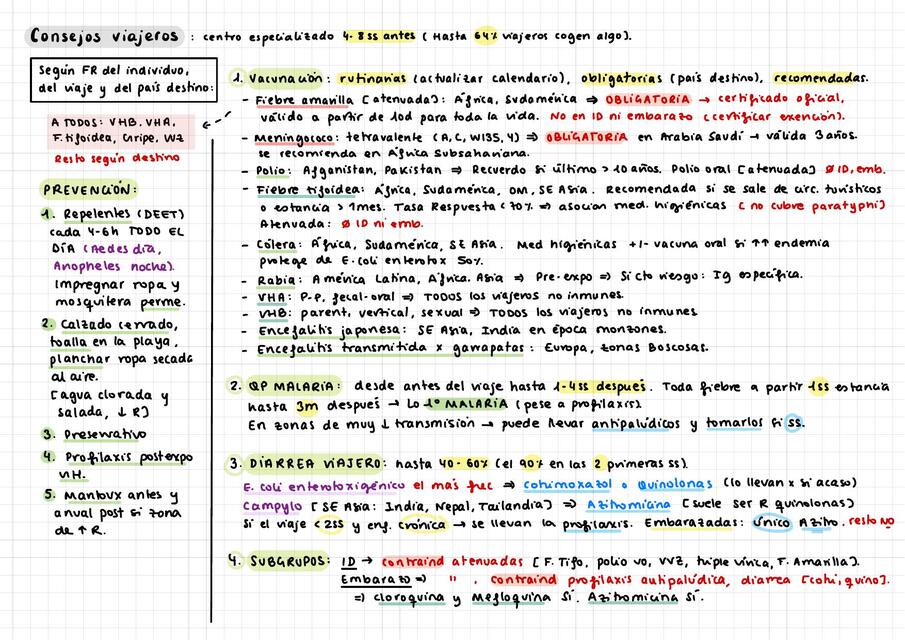 Consejos viajeros : centro especializado 4-8ss antes (Hasta 64% viajeros cogen algo).
Según FR del individuo,
del viaje y del país destino:
A TODOS: VHB, VHA,
F. tifoidea, Gripe, VVZ
Resto según destino
PREVENCIÓN:
1. Repelentes (DEET)
cada 4-6h TODO EL
DÍA (Aedes día,
Anopheles noche).
Impregnar ropa y
mosquitera perme.
2. Calzado cerrado,
toalla en la playa,
planchar ropa secada
al aire.
[agua clorada y
salada, ↓ R]
3. Preservativo
4. Profilaxis postexpo
VIH.
5. Mantoux antes y
anual post si zona
de ↑ R.
1. Vacunación: rutinarias (actualizar calendario), obligatorias (país destino), recomendadas.
- Fiebre amarilla [atenuada]: África, Sudoménica ⇒ OBLIGATORIA → certificado oficial,
válido a partir de 10d para toda la vida. No en ID ni embarazo (certificar exención).
- Meningococo: tetravalente (A, C, W135, Y) ⇒ OBLIGATORIA en Arabia Saudí → válida 3 años.
se recomienda en África Subsahariana.
- Polio: Afganistan, Pakistan ⇒ Recuerdo si último > 10 años. Polio oral [atenuada] Ø ID, emb.
- Fiebre tifoidea: África, Sudamérica, OM, SE Asia. Recomendada si se sale de circ. turísticos
o estancia > 1mes. Tasa Respuesta <70% ⇒ asocian med. higiénicas (no cubre paratyphi)
Atenuada: Ø ID ni emb.
- Cólera: África, Sudamérica, SE Asia. Med higiénicas +/- vacuna oral si ↑↑ endemia
protege de E. coli enterotox 50%.
- Rabia: América Latina, África, Asia ⇒ Pre-expo ⇒ Si cto riesgo: Ig específica.
- VHA: P-P, fecal-oral ⇒ TODOS los viajeros no inmunes.
- VHB: parent, vertical, sexual ⇒ TODOS los viajeros no inmunes
- Encefalitis japonesa: SE Asia, India en época monzones.
- Encefalitis transmitida x garrapatas: Europa, zonas Boscosas.
2. QP MALARIA: desde antes del viaje hasta 1-4ss después. Toda fiebre a partir 1ss estancia
hasta 3m después → Lo 1º MALARIA (pese a profilaxis).
En zonas de muy ↓ transmisión → puede llevar antipalúdicos y tomarlos si ss.
3. DIARREA VIAJERO: hasta 40-60% (el 90% en las 2 primeras ss).
E. coli enterotoxigénico el más frec ⇒ cotrimoxazol o Quinolonas (lo llevan x si acaso)
Campylo [SE Asia: India, Nepal, Tailandia] ⇒ Azitromicina [suele ser R quinolonas]
Si el viaje <2ss y enf. crónica → se llevan la profilaxis. Embarazadas: único Azitro. resto NO
4. SUBGRUPOS: ID → contraind atenuadas [F. Tifo, polio vo, VVZ, triple vírica, F. Amarilla].
Embarazo ⇒ " , contraind profilaxis antipalúdica, diarrea [cotri, quino].
⇒ Cloroquina y Mefloquina Sí. Azitromicina Sí.